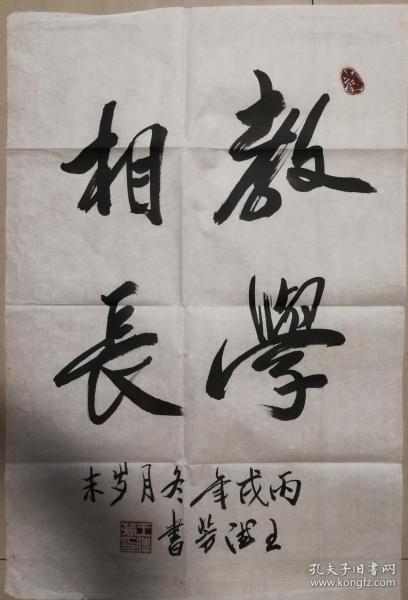 教學
相長
丙戌年冬月岁末
王
書
孔夫子旧书网
www.kongfz.com